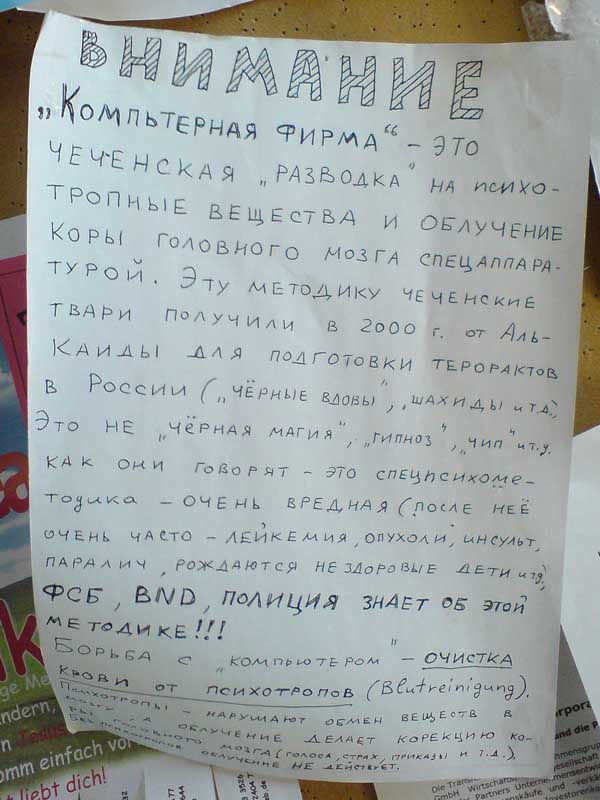 ВНИМАНИЕ
„КОМПЬТЕРНАЯ ФИРМА“ – ЭТО
ЧЕЧЕНСКАЯ „РАЗВОДКА“ НА ПСИХО-
ТРОПНЫЕ ВЕЩЕСТВА И ОБЛУЧЕНИЕ
КОРЫ ГОЛОВНОГО МОЗГА СПЕЦАППАРА-
ТУРОЙ. ЭТУ МЕТОДИКУ ЧЕЧЕНСКИЕ
ТВАРИ ПОЛУЧИЛИ В 2000 г. от АЛЬ-
КАИДЫ ДЛЯ ПОДГОТОВКИ ТЕРОРАКТОВ
В РОССИИ („ЧЁРНЫЕ ВДОВЫ“, „ШАХИДЫ и т.д.)
ЭТО НЕ „ЧЁРНАЯ МАГИЯ“, „ГИПНОЗ“, „ЧИП“ и т.д.
КАК ОНИ ГОВОРЯТ – ЭТО СПЕЦПСИХОМЕ-
тодика – ОЧЕНЬ ВРЕДНАЯ (ПОСЛЕ НЕЁ
ОЧЕНЬ ЧАСТО – ЛЕЙКЕМИЯ, ОПУХОЛИ, ИНСУЛЬТ,
ПАРАЛИЧ, РОЖДАЮТСЯ НЕЗДОРОВЫЕ ДЕТИ и т.д.)
ФСБ, BND, ПОЛИЦИЯ ЗНАЕТ ОБ ЭТОЙ
МЕТОДИКЕ!!!
БОРЬБА С „КОМПЬЮТЕРОМ“ – ОЧИСТКА
КРОВИ ОТ ПСИХОТРОПОВ (Blutreinigung).
ПСИХОТРОПЫ – НАРУШАЮТ ОБМЕН ВЕЩЕСТВ В
МОЗГУ, А ОБЛУЧЕНИЕ ДЕЛАЕТ КОРЕКЦИЮ КО-
РЫ ГОЛОВНОГО МОЗГА (ГОЛОСА, СТРАХ, ПРИКАЗЫ И Т.Д.),
БЕЗ ПСИХОТРОПОВ ОБЛУЧЕНИЕ НЕ ДЕЙСТВУЕТ.
Jesus
omm einfach vor
liebt dich!
GmbH Wirtschafts
Partners Unternehmensentwi